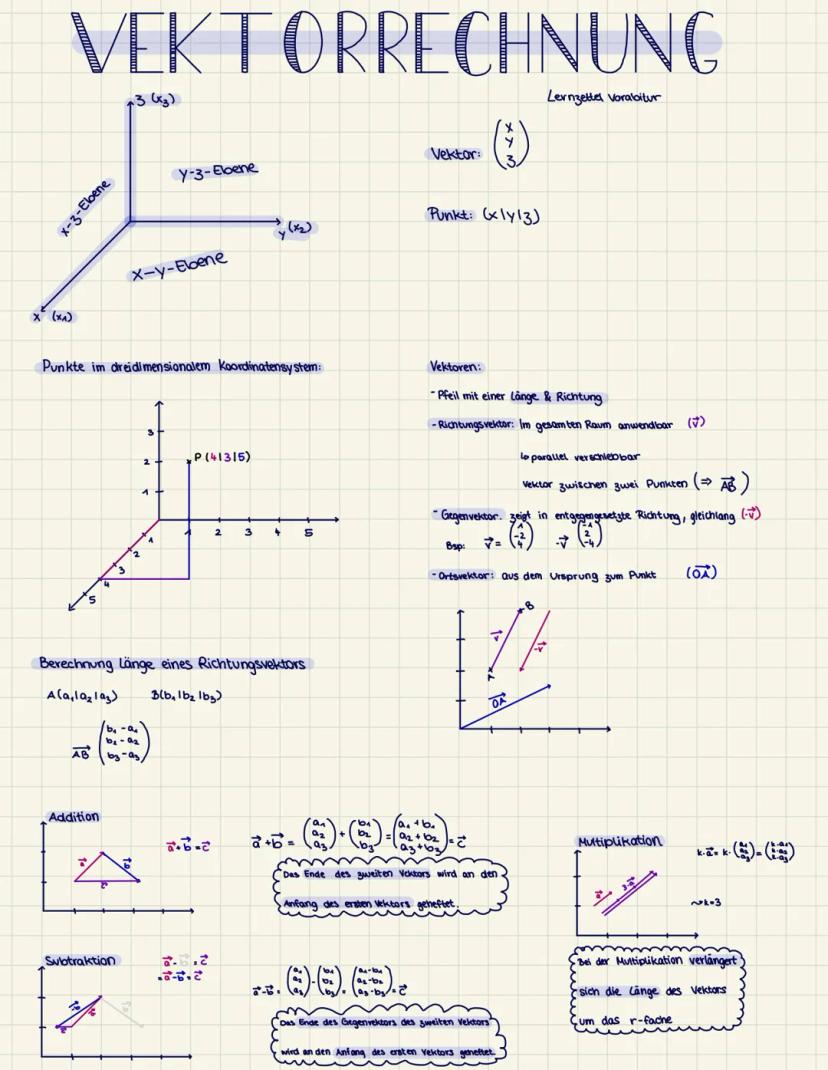 VEKTORRECHNUNG
Lernzettel Vorabitur
z (x₃)
y-z-Ebene
x-z-Ebene
y (x₂)
x-y-Ebene
x (x₁)
Vektor: (x y z)
Punkt: (x|y|z)
Punkte im dreidimensionalem Koordinatensystem:
3
2
1
P (4|3|5)
1 2 3 4 5
1
2
3
4
5
Vektoren:
- Pfeil mit einer Länge & Richtung
- Richtungsvektor: Im gesamten Raum anwendbar (v⃗)
↳ parallel verschiebbar
Vektor zwischen zwei Punkten (⇒ AB⃗)
- Gegenvektor: zeigt in entgegengesetzte Richtung, gleichlang (-v⃗)
Bsp: v⃗ = (1 -2 4) -v⃗ (-1 2 -4)
- Ortsvektor: aus dem Ursprung zum Punkt (OA⃗)
B
v⃗
-v⃗
A
OA⃗
Berechnung Länge eines Richtungsvektors
A(a₁|a₂|a₃) B(b₁|b₂|b₃)
AB⃗ (b₁-a₁ b₂-a₂ b₃-a₃)
Addition
a⃗+b⃗=c⃗
a⃗ b⃗
c⃗
a⃗+b⃗ = (a₁ a₂ a₃) + (b₁ b₂ b₃) = (a₁+b₁ a₂+b₂ a₃+b₃) = c⃗
Das Ende des zweiten Vektors wird an den
Anfang des ersten Vektors geheftet.
Multiplikation
k·a⃗ = k·(a₁ a₂ a₃) = (k·a₁ k·a₂ k·a₃)
a⃗ 3·a⃗
↝ k=3
Bei der Multiplikation verlängert
sich die Länge des Vektors
um das r-fache
Subtraktion
a⃗ - b⃗ = c⃗
= a⃗-b⃗ = c⃗
a⃗-b⃗ = (a₁ a₂ a₃) - (b₁ b₂ b₃) = (a₁-b₁ a₂-b₂ a₃-b₃) = c⃗
Das Ende des Gegenvektors des zweiten Vektors
wird an den Anfang des ersten Vektors geheftet.